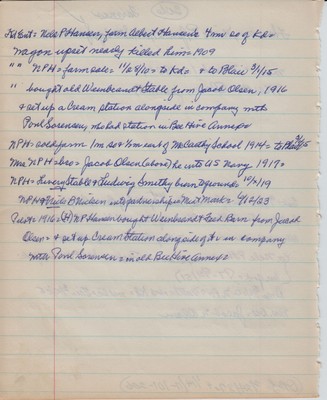 Ent = Nels P Hansen, farm Albert Hansen's 4 mi so of Kd=
wagon upset nearly killed him = 1909
" " NPH = farm sale = 1/28/10 = to Kd = & to Blair 3/1/15
" bought old Weinbrandt Stable from Jacob Olsen, 1916
& set up a Cream station alongside in company with
Poul Sorensen, who had station in Bee Hive Annex =
NPH = sold farm 1 m so & ½ m east of McCarthy School 1914 = to Blair 3/1/15
Mrs NPH = bro = Jacob Olsen (above) he into US Navy 1917 =
NPH = Livery Stable & Ludwig Smithy burn to ground = 10/2/19
NPH & Niels P Nielsen into partnership in Meat Mark = 4/12/23
Pilot = 1916 = (H) NP Hansen bought Weinbrandt Feed Barn from Jacob
Olsen = & set up Cream Station alongside of it = in company
with Poul Sorensen = in old BeeHive Annex =